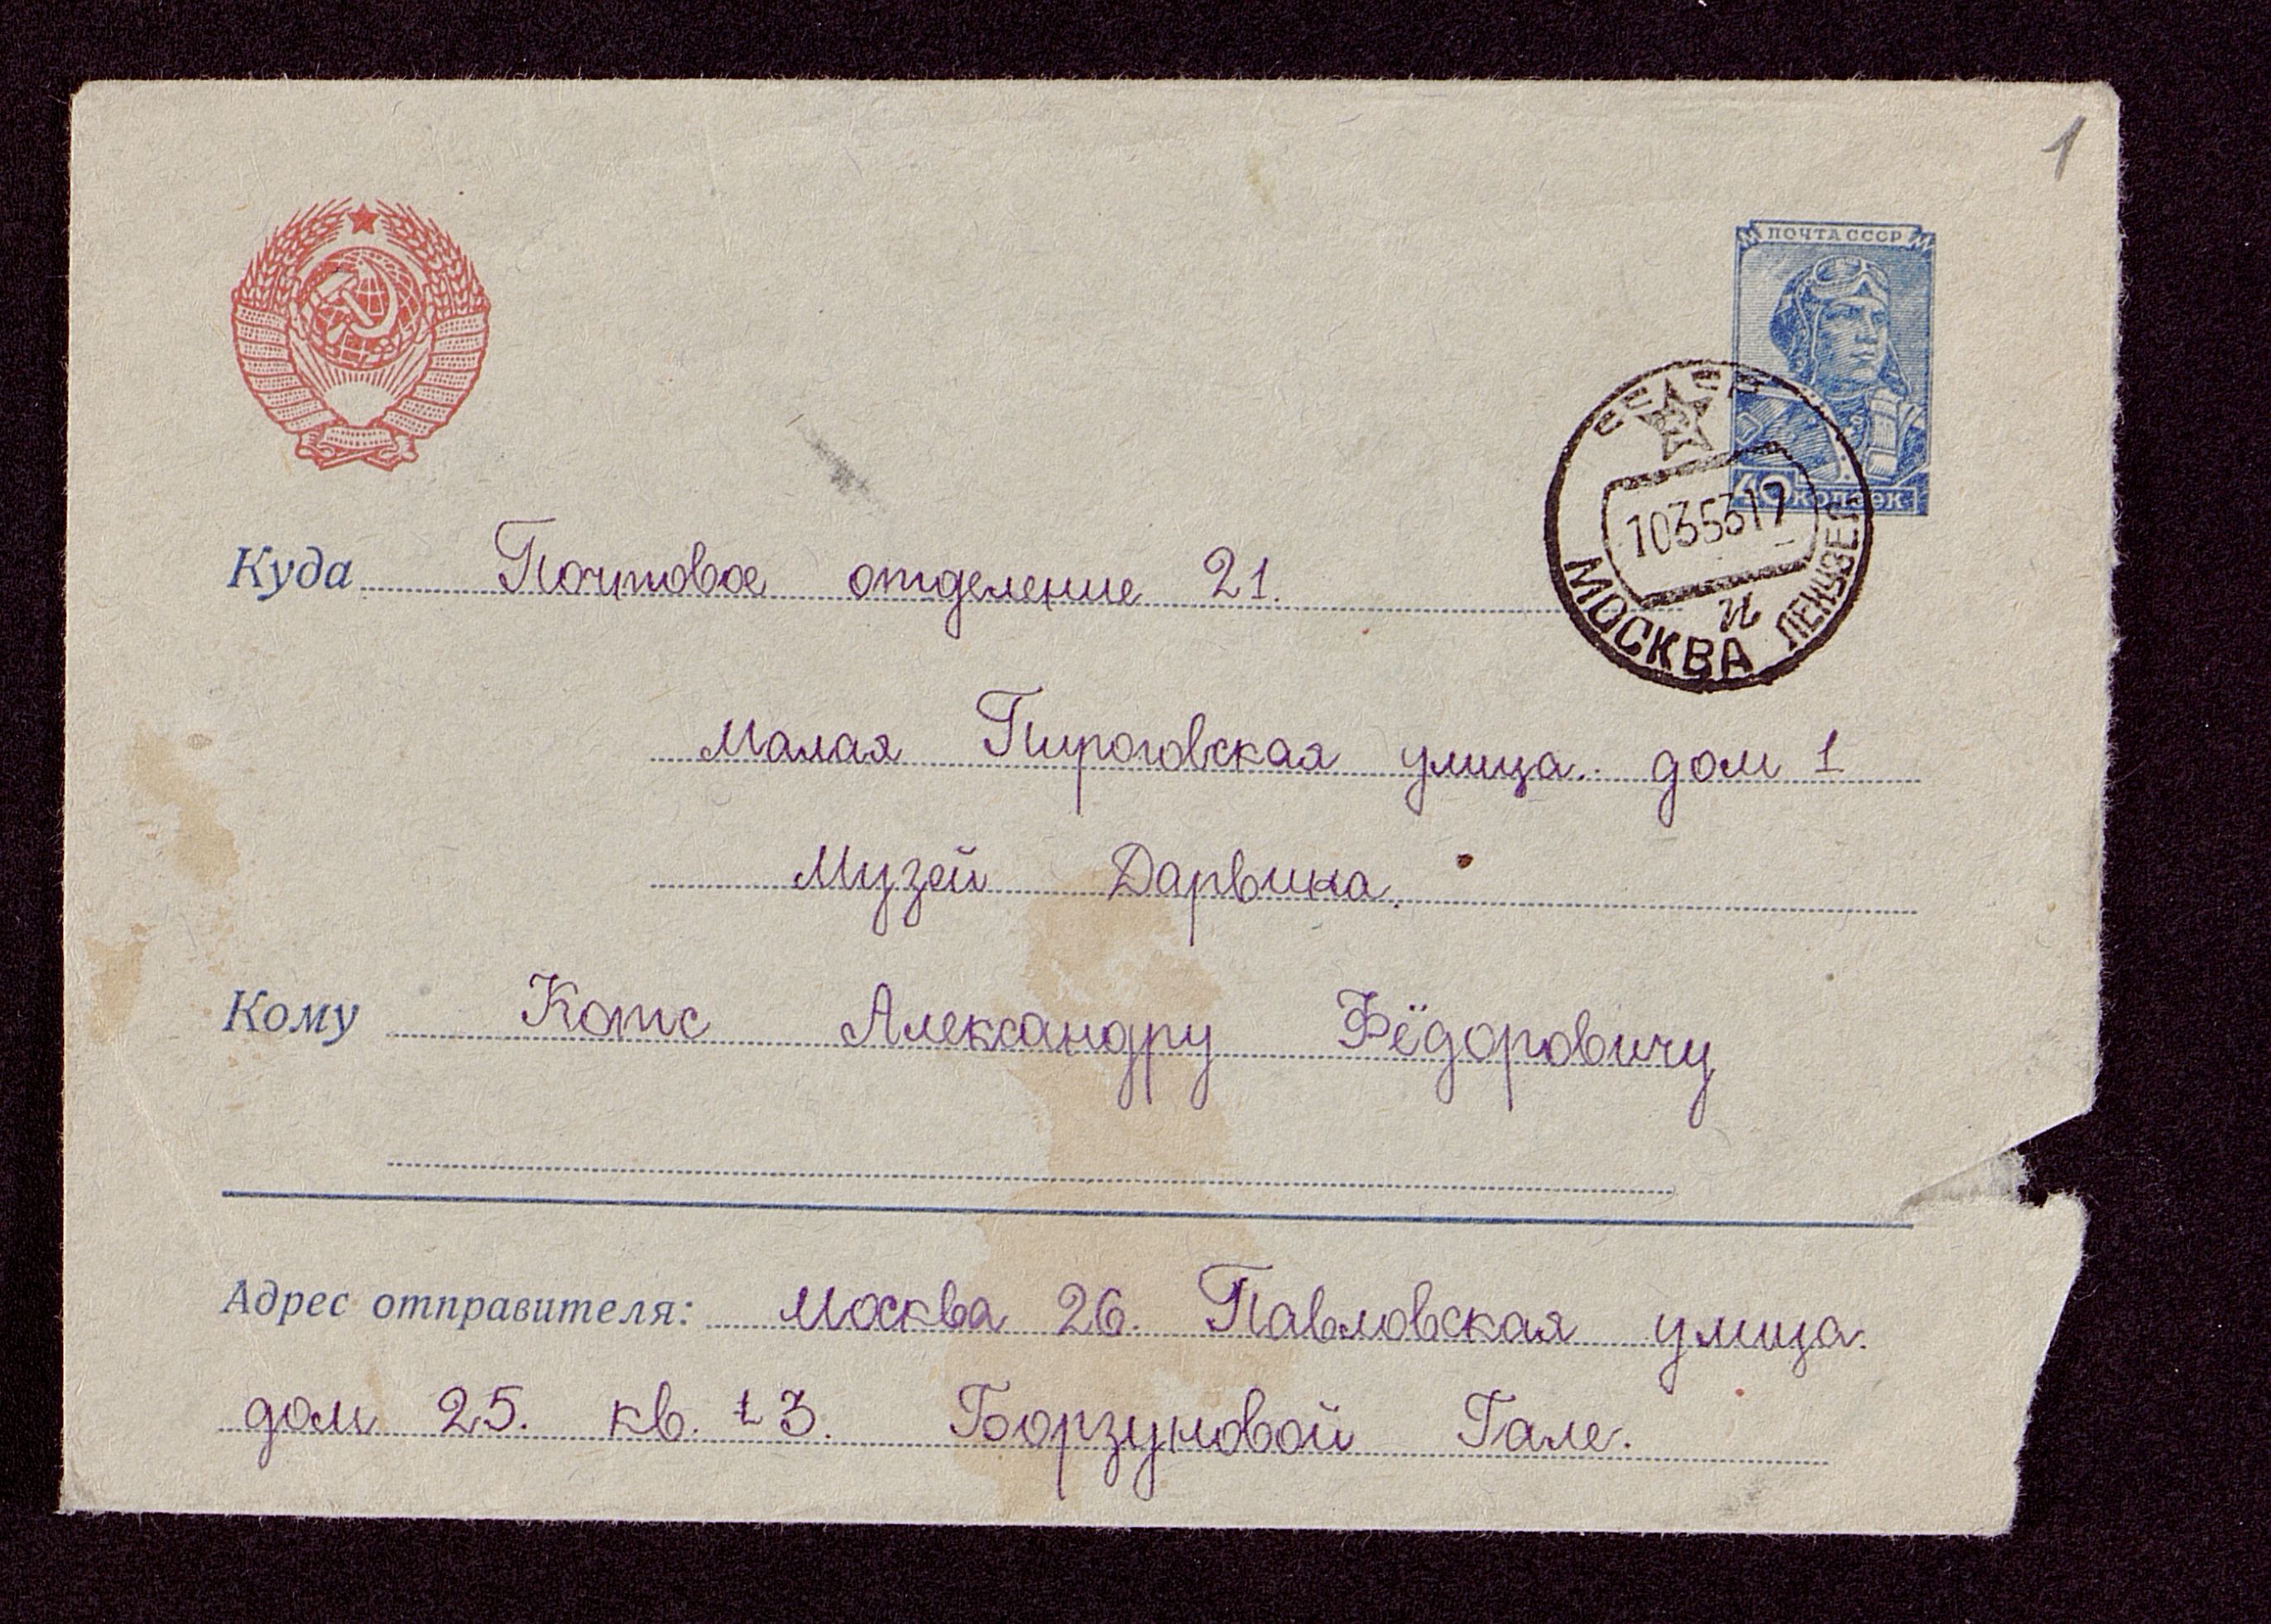 1
ПОЧТА СССР
40 копеек
СССР
10 3 53 17
и
МОСКВА
Куда Почтовое отделение 21.
Малая Пироговская улица. дом 1
Музей Дарвина.
Кому Котс Александру Фёдоровичу
Адрес отправителя: Москва 26. Павловская улица.
дом 25. кв. 3. Борзуновой Гале.